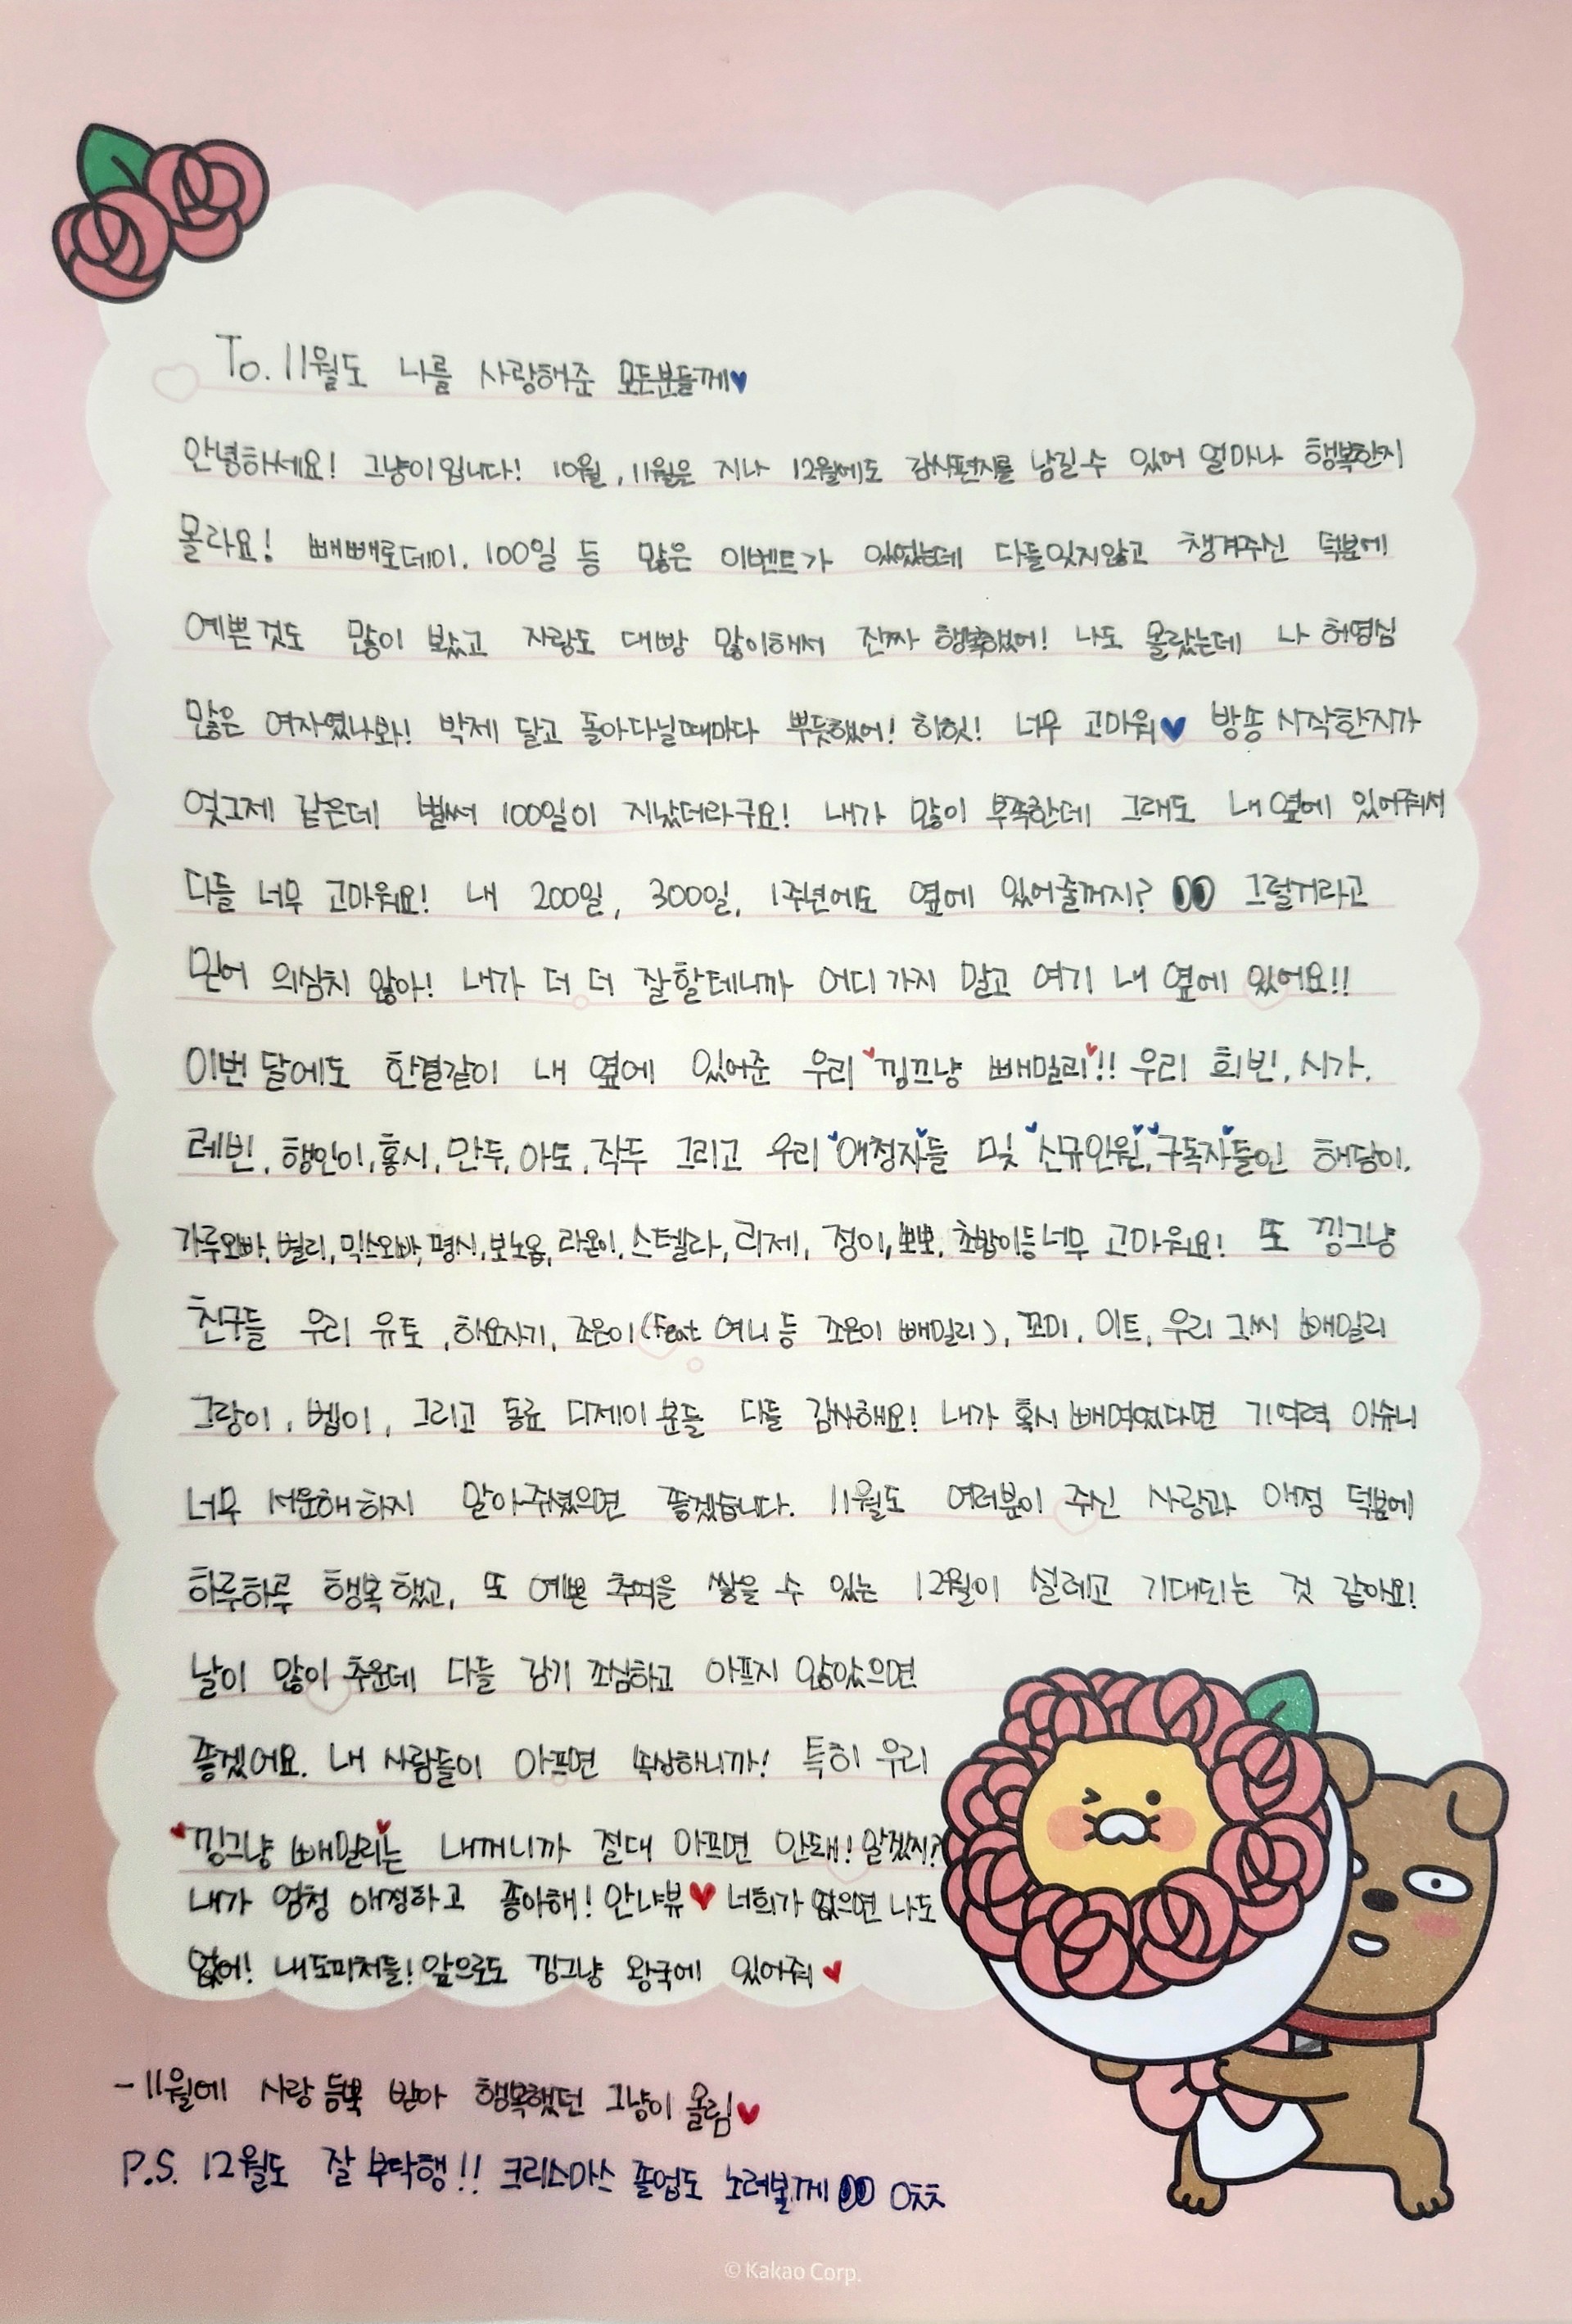 To. 11월도 나를 사랑해준 모든분들께♥
안녕하세요! 그냥이입니다! 10월, 11월은 지나 12월에도 감사편지를 남길수 있어 얼마나 행복한지
몰라요! 빼빼로데이. 100일 등 많은 이벤트가 있었는데 다들잊지않고 챙겨주신 덕분에
예쁜것도 많이 봤고 자랑도 대빵 많이해서 진짜 행복했어! 나도 몰랐는데 나 허영심
많은 여자였나봐! 박제 달고 돌아다닐때마다 뿌듯했어! 히힛! 너무 고마워♥ 방송 시작한지가
엊그제 같은데 벌써 100일이 지났더라구요! 내가 많이 부족한데 그래도 내 옆에 있어줘서
다들 너무 고마워요! 내 200일, 300일, 1주년에도 옆에 있어줄꺼지? 그럴거라고
믿어 의심치 않아! 내가 더 더 잘할테니까 어디 가지 말고 여기 내 옆에 있어요!!
이번 달에도 한결같이 내 옆에 있어준 우리 "낑끄냥 빼밀리"!! 우리 희빈, 시가.
레빈, 행인이, 홍시, 만두, 아도, 작두 그리고 우리 "애정자"들 및 "신규인원", "구독자"들인 해달이.
가루오빠, 벌리, 믹스오빠, 평시, 보노옴, 라온이, 스텔라, 리제, 정이, 뽀뽀, 초밥이등 너무 고마워요! 또 낑그냥
친구들 우리 유토, 하요자기, 조은이(feat 여니 등 조은이 빼밀리), 꼬미, 이트, 우리 그씨 빼밀리
그랑이, 벱이, 그리고 동료 디제이분들 다들 감사해요! 내가 혹시 빼먹었다면 기억력 이슈니
너무 서운해하지 말아주셨으면 좋겠습니다. 11월도 여러분이 주신 사랑과 애정 덕분에
하루하루 행복했고, 또 예쁜 추억을 쌓을 수 있는 12월이 설레고 기대되는 것 같아요!
날이 많이 추운데 다들 감기 조심하고 아프지 않았으면
좋겠어요. 내 사람들이 아프면 속상하니까! 특히 우리
"낑그냥 빼밀리"는 내꺼니까 절대 아프면 안돼! 알겠지?
내가 엄청 애정하고 좋아해! 안냐뷰♥ 너희가 없으면 나도
없어! 내도피처들! 앞으로도 낑그냥 왕국에 있어줘♥
- 11월에 사랑 듬뿍 받아 행복했던 그냥이 올림♥
P.S. 12월도 잘 부탁행!! 크리스마스 졸업도 노려볼께 ㅇㅊㅊ
© Kakao Corp.